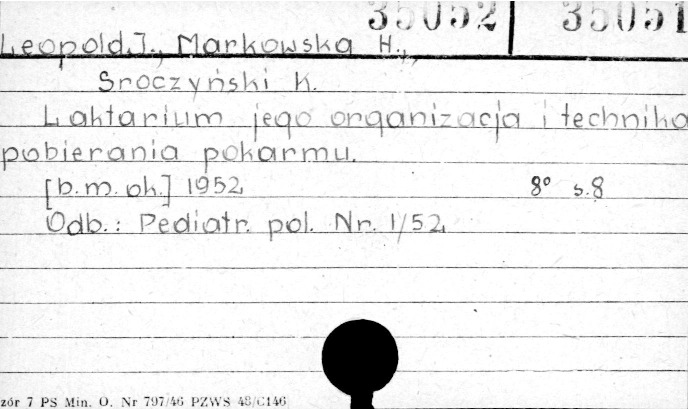 35052 35051
Leopold J., Markowska H.,
Sroczyński K.
Laktarium jego organizacja i technika
pobierania pokarmu.
[b.m. ok.] 1952 8° s.8
Odb.: Pediatr. pol. Nr. 1/52
zór 7 PS Min. O. Nr 797/46 PZWS 48/C146